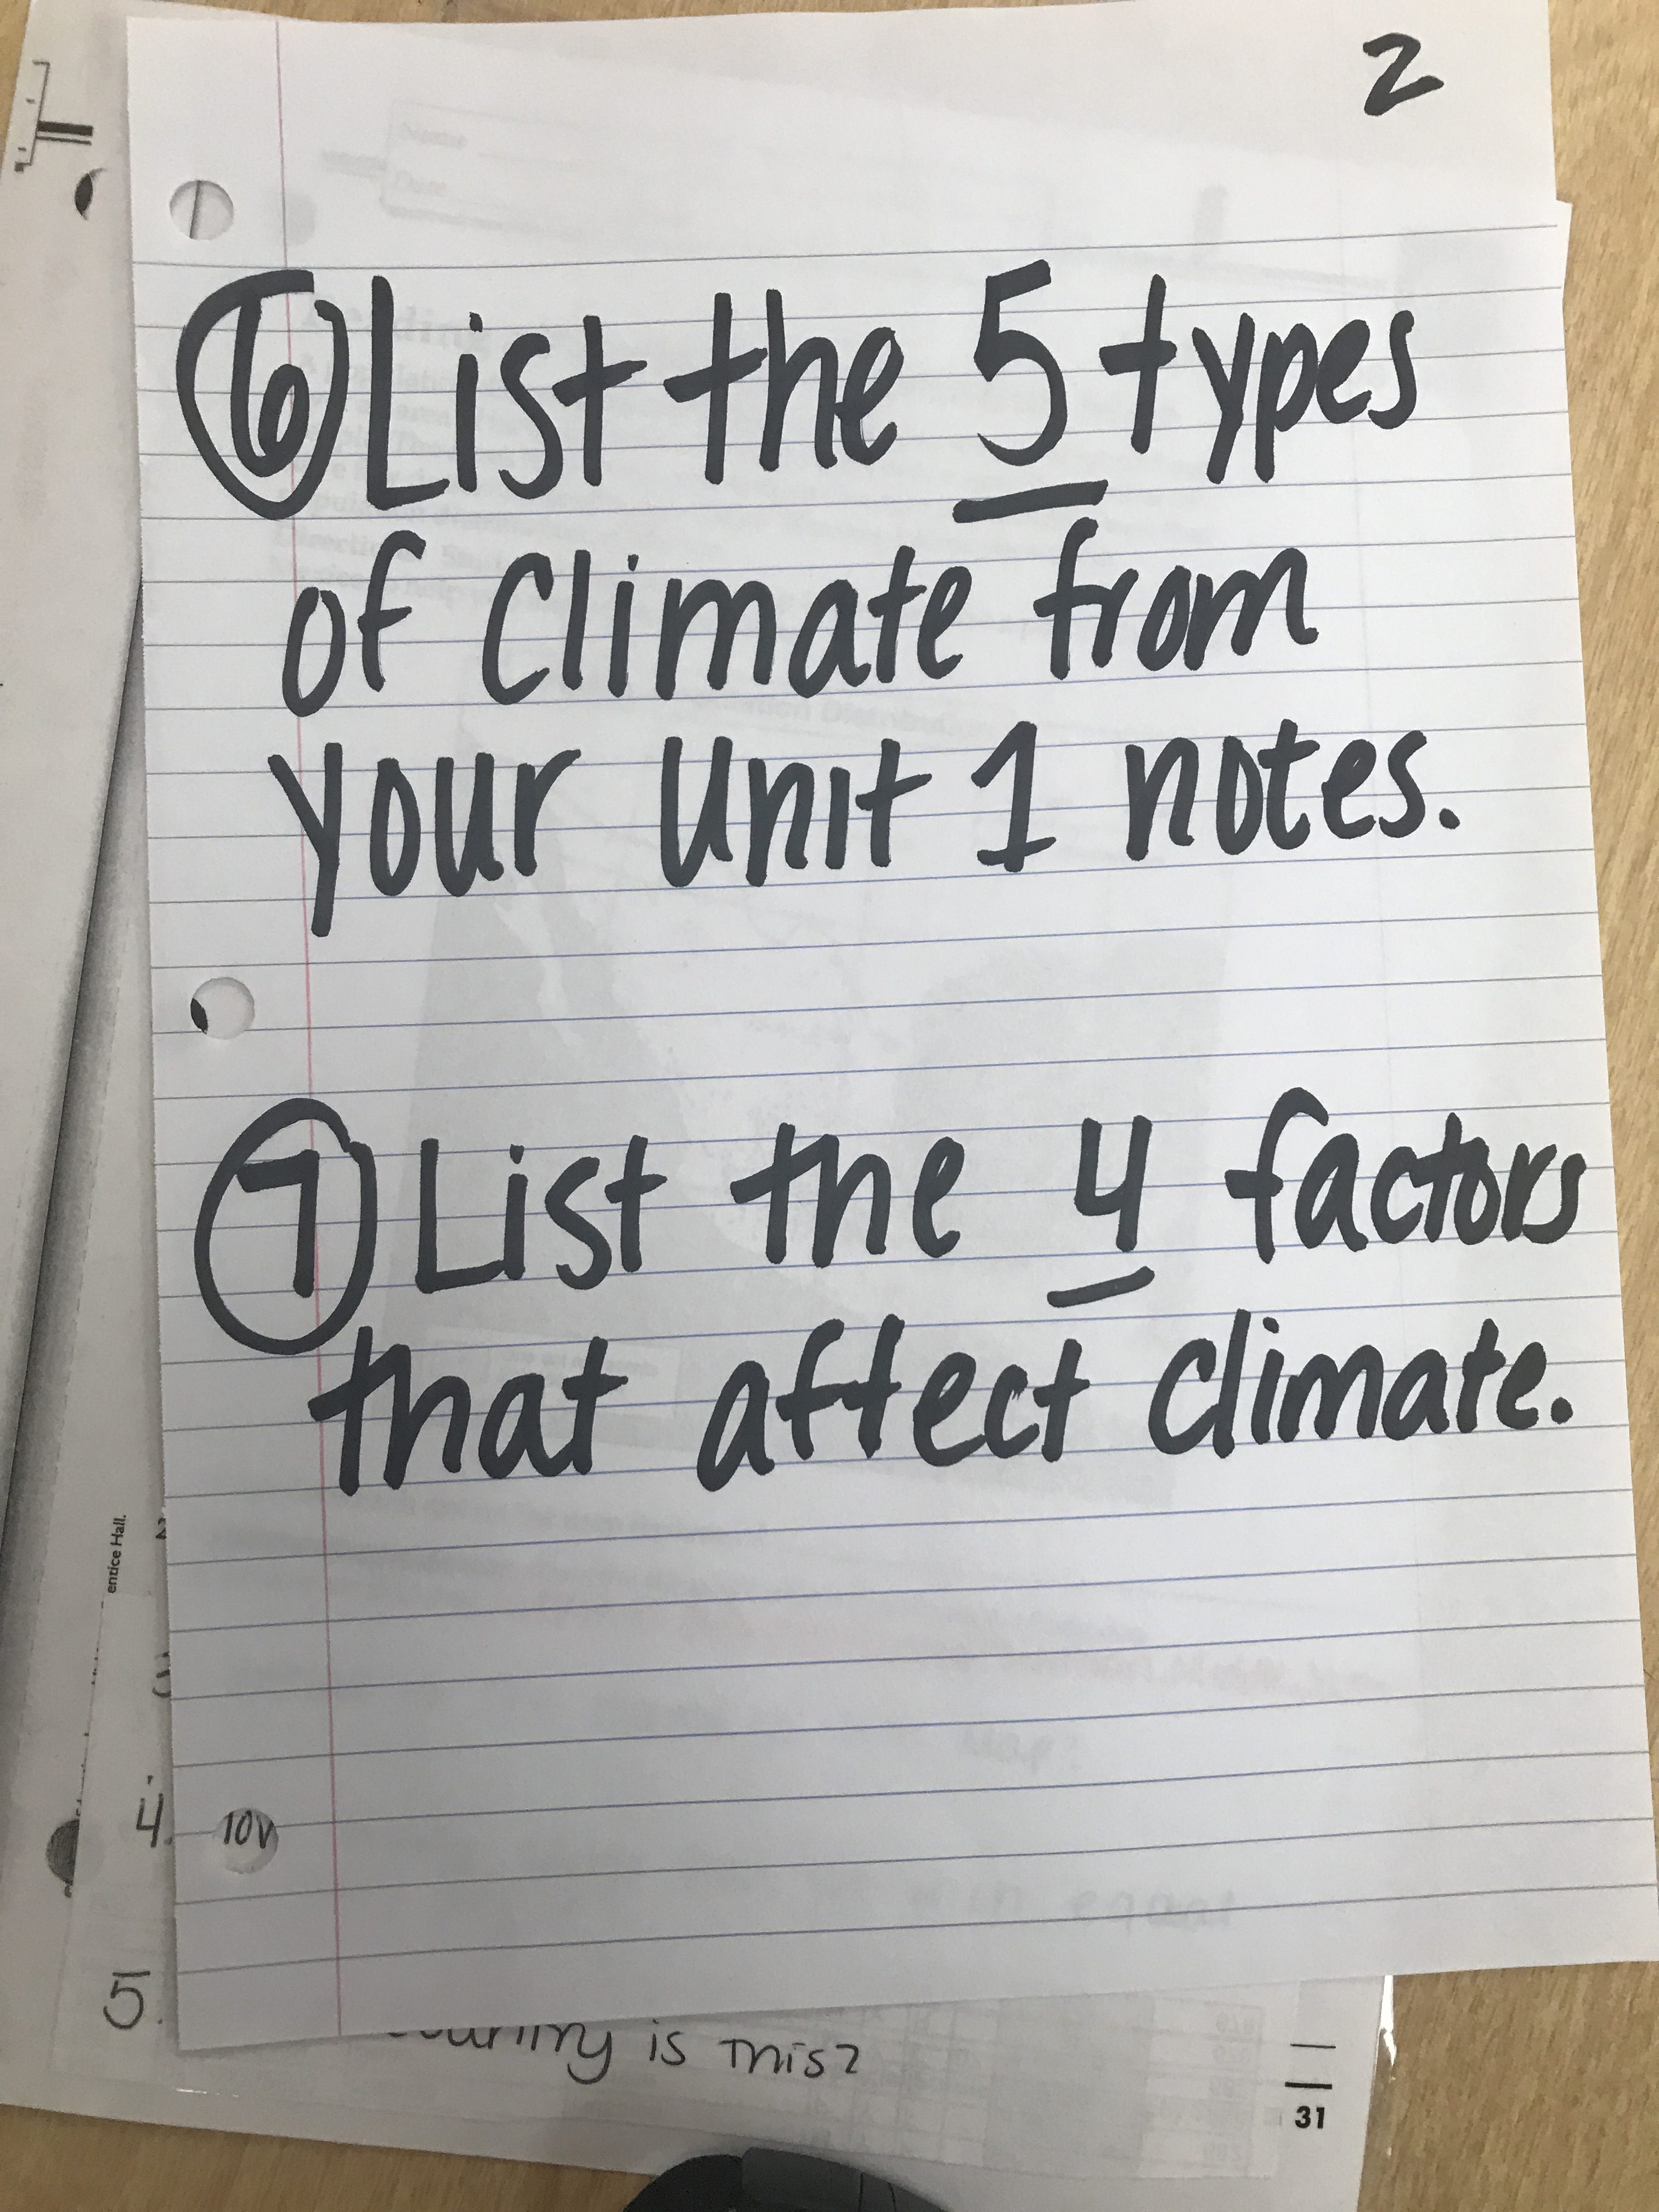 2
6 List the 5 types
of Climate from
your Unit 1 notes.
7 List the 4 factors
that affect Climate.
entice Hall.
4.
10V
5.
country is this?
31